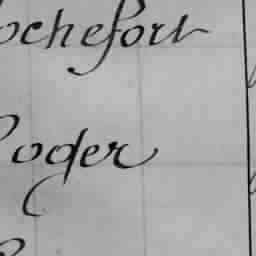 ochefort
oger